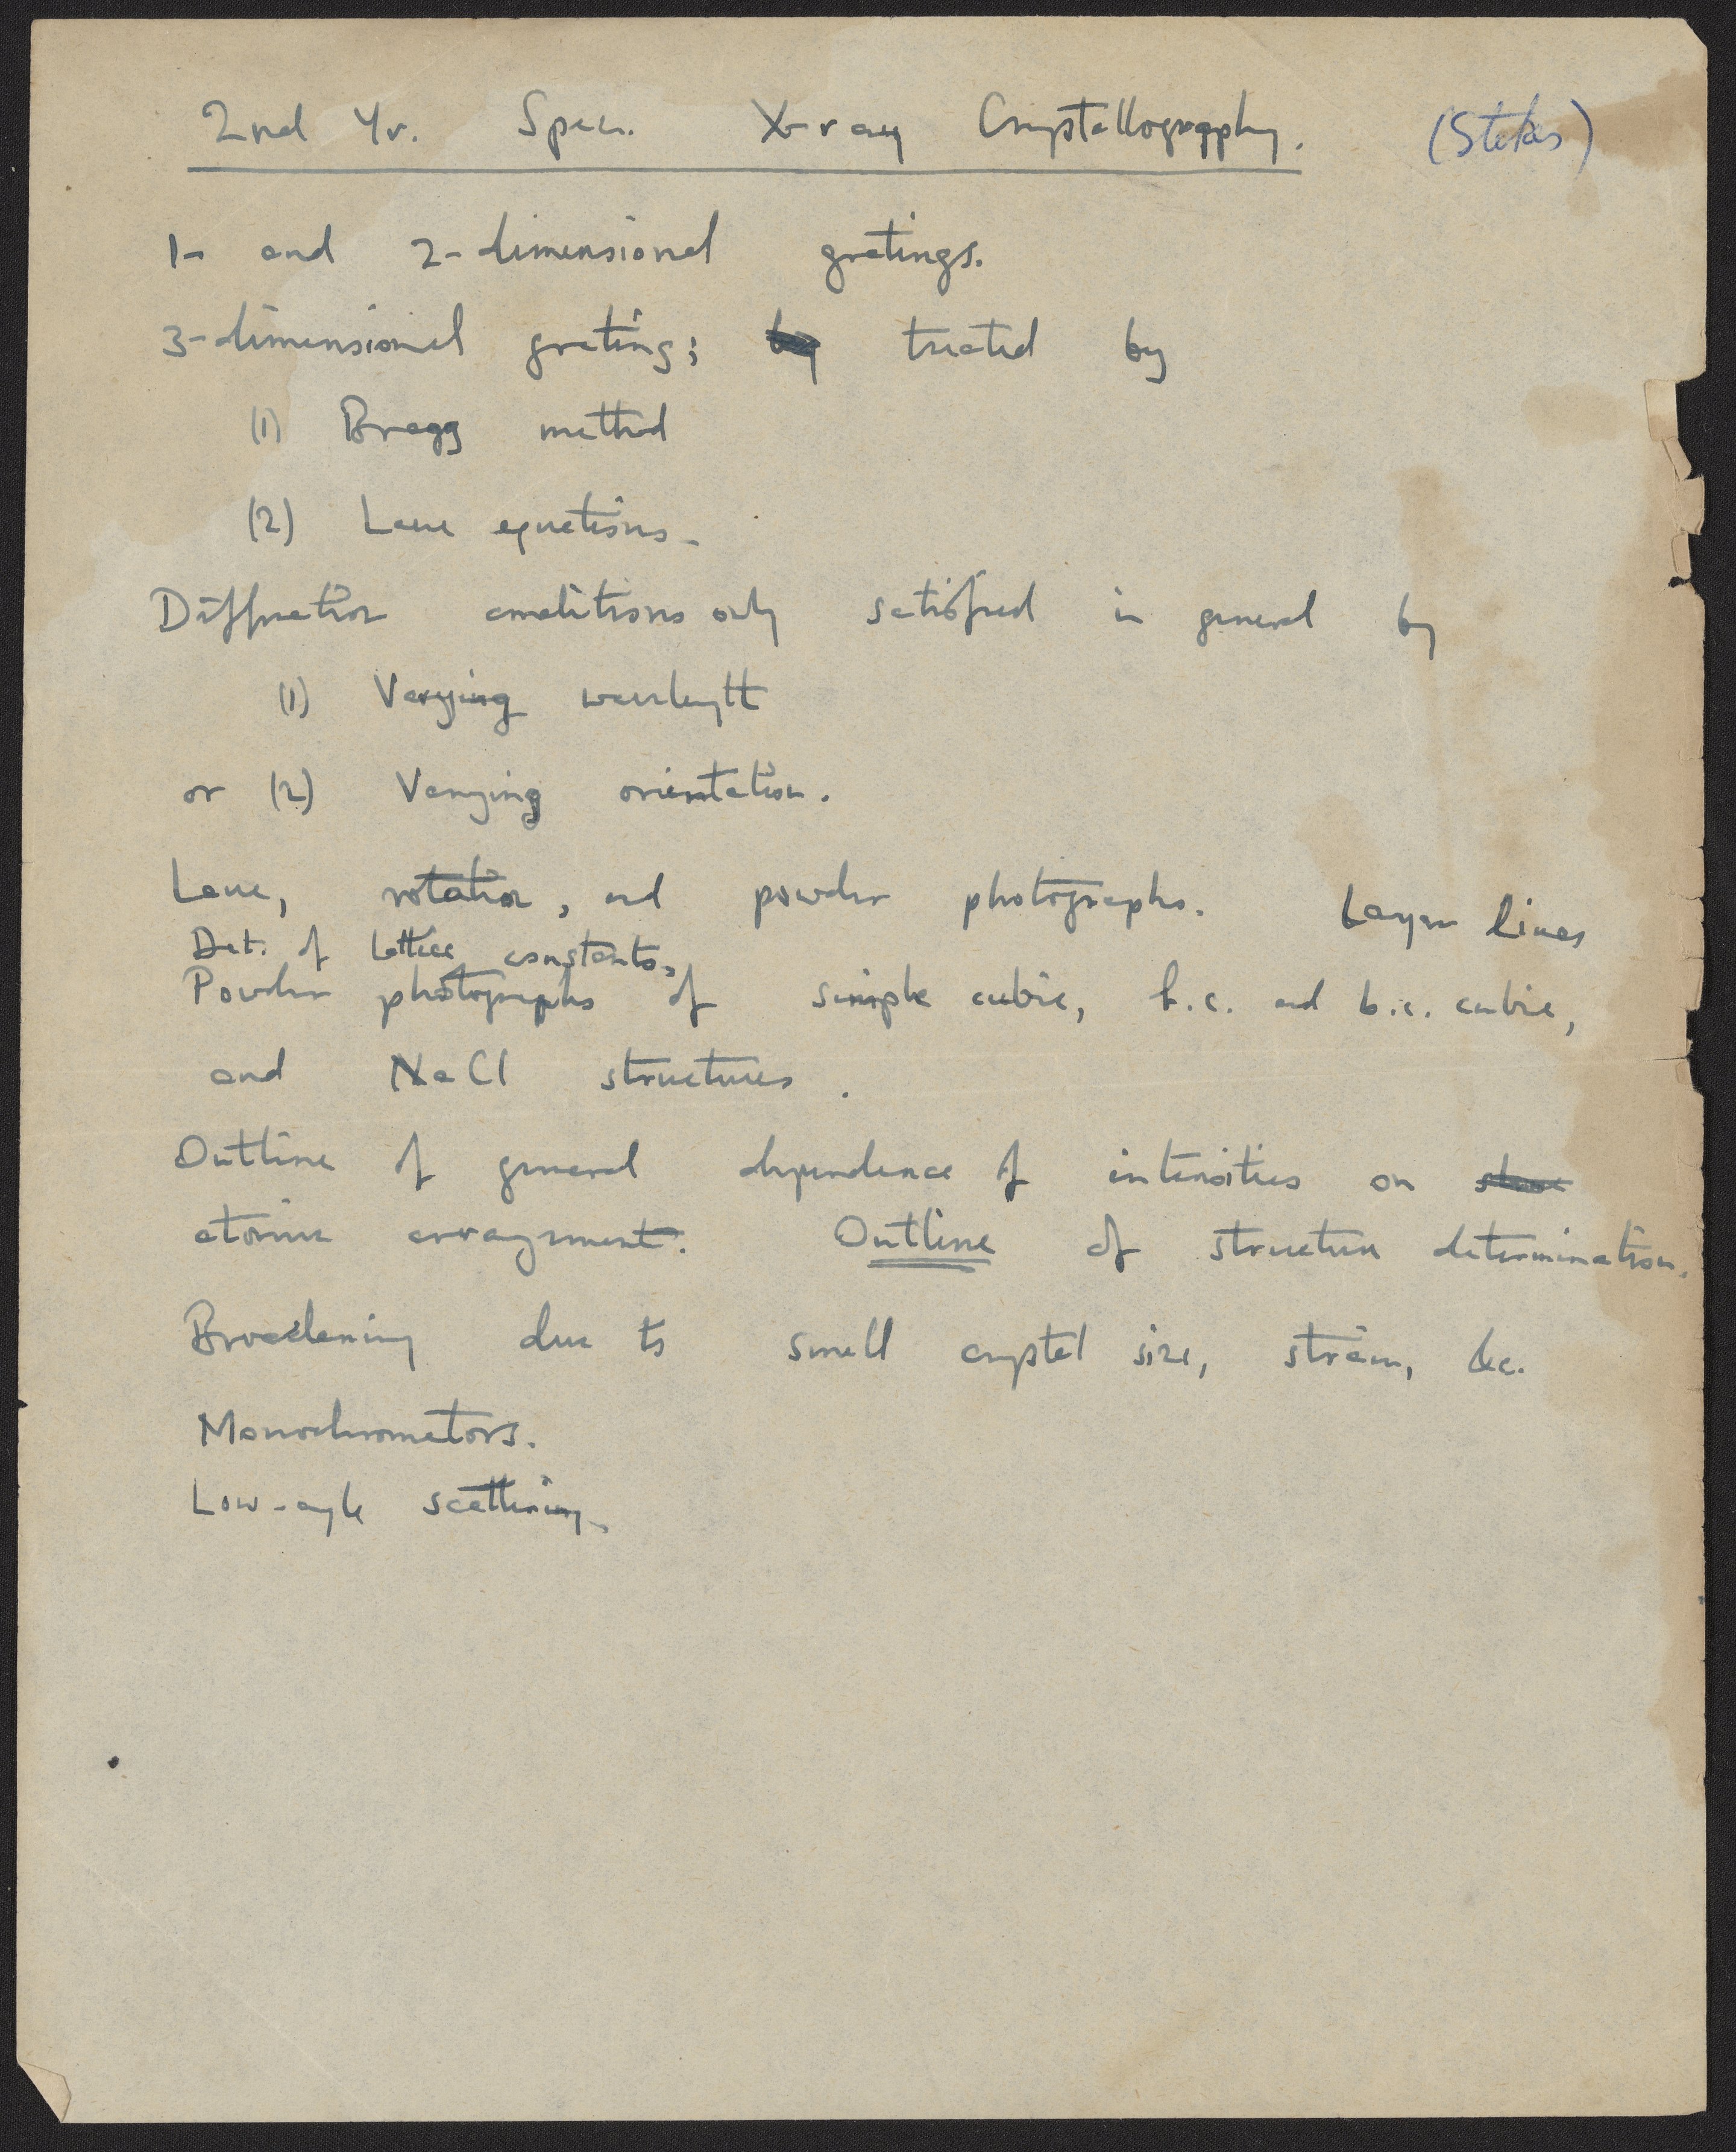 2nd Yr. Spec. X-ray Crystallography. (Stokes)
1- and 2-dimensional gratings.
3-dimensional grating; by treated by
(1) Bragg method
(2) Laue equations.
Diffraction conditions only satisfied in general by
(1) Varying wavelength
or (2) Varying orientation.
Laue, rotation, and powder photographs. Layer lines
Det. of lattice constants,
Powder photographs of simple cubic, f.c. and b.c. cubic,
and NaCl structures.
Outline of general dependence of intensities on
atomic arrangement. Outline of structure determination.
Broadening due to small crystal size, strain, &c.
Monochromators.
Low-angle scattering.